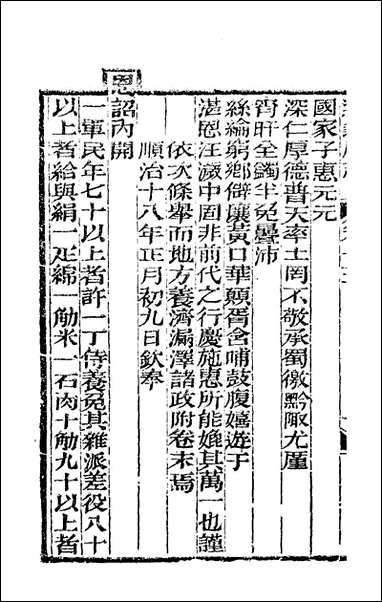 國家子惠元元
深仁厚德普天率土罔不敬承蜀徼黔陬尤厪
宵旰全蠲半免疊沛
絲綸窮鄉僻壤黃口華顛胥含哺鼓腹嬉遊于
湛恩汪濊中固非前代之行慶施惠所能媲其萬一也謹
依次條舉而地方養濟漏澤諸政附卷末焉
順治十八年正月初九日欽奉
恩詔內開
一軍民年七十以上者許一丁侍養免其雜派差役八十
以上者給與絹一疋綿一觔米一石肉十觔九十以上者